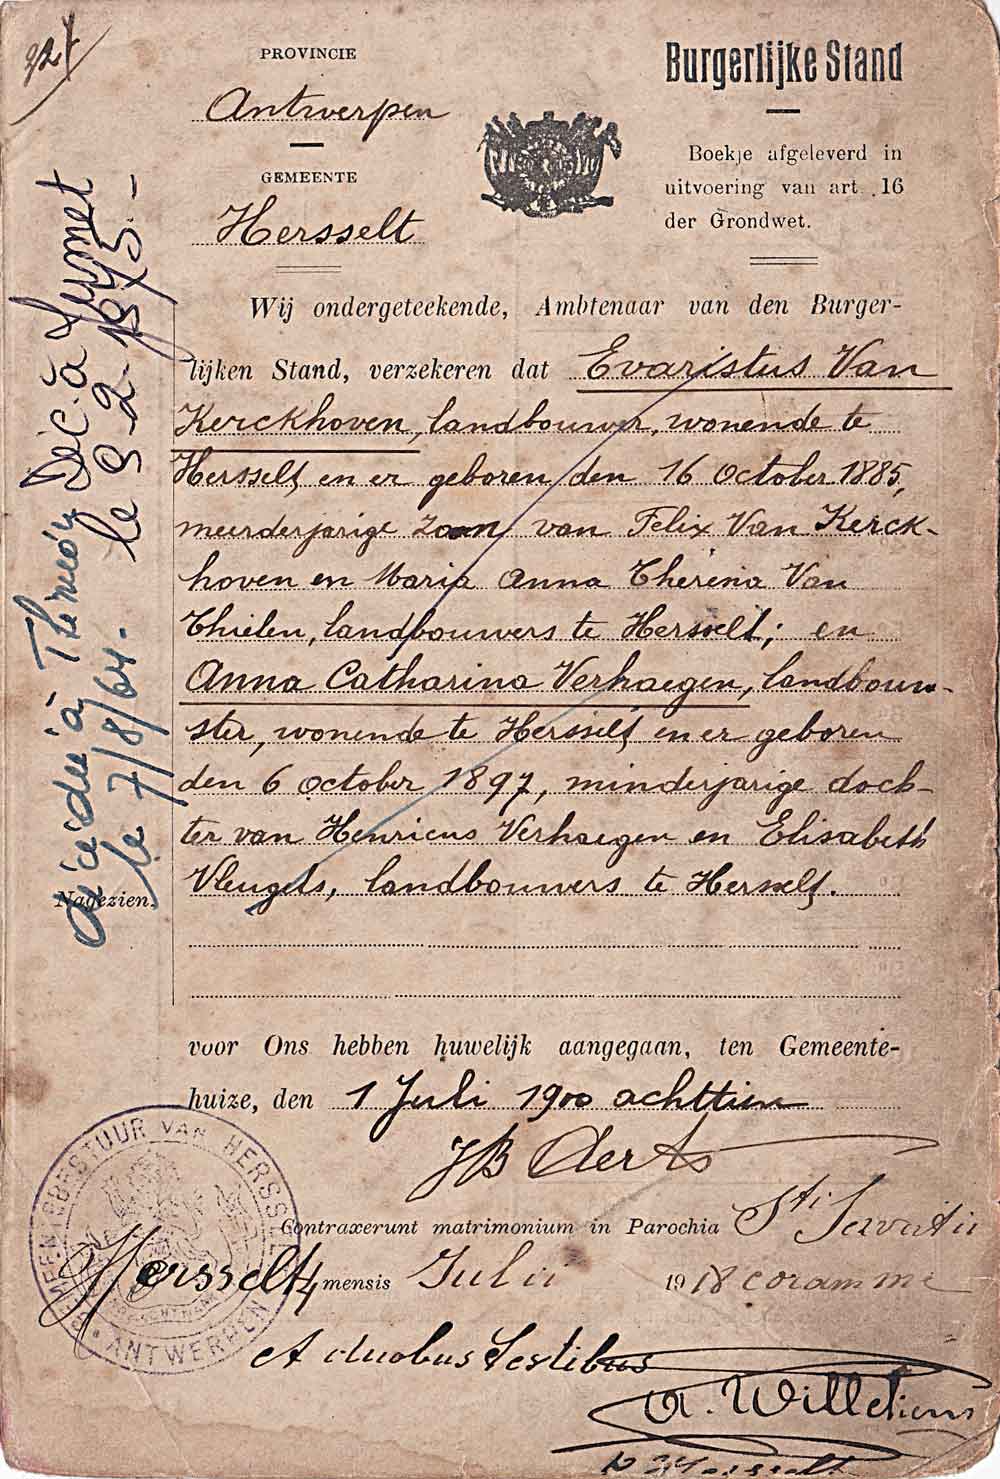 PROVINCIE
Antwerpen
GEMEENTE
Hersselt
Burgerlijke Stand
Boekje afgeleverd in
uitvoering van art. 16
der Grondwet.
Wij ondergeteekende, Ambtenaar van den Burger-
lijken Stand, verzekeren dat Evaristus Van
Kerckhoven, landbouwer, wonende te
Hersselt en er geboren den 16 October 1885,
meerderjarige zoon van Felix Van Kerck-
hoven en Maria Anna Theresia Van
Thielen, landbouwers te Hersselt; en
Anna Catharina Verhaegen, landbouw-
ster, wonende te Hersselt en er geboren
den 6 october 1897, minderjarige doch-
ter van Henricus Verhaegen en Elisabeth
Vleugels, landbouwers te Hersselt.
Nagezien.
décédée à Thiméon
le 7/8/64.
Déc. à Jumet
le 9-2-1975.-
voor Ons hebben huwelijk aangegaan, ten Gemeente-
huize, den 1 Juli 1900 achttien
JB Aerts
Contraxerunt matrimonium in Parochia Sti Servatii
Hersselt 4 mensis Julii 1918 coram me
et duobus testibus
A. Willekens
GEMEENTEBESTUUR VAN HERSSELT
ANTWERPEN